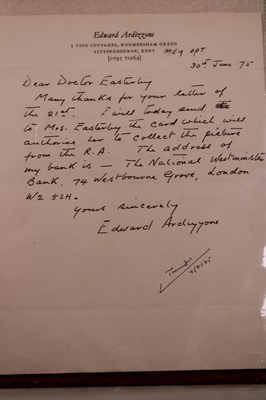 Edward Ardizzone
5 VINE COTTAGES, RODMERSHAM GREEN
SITTINGBOURNE, KENT
[0795 71264]
30th June 75
Dear Doctor Easterby
Many thanks for your letter of
the 21st. I will today send the
to Mrs. Easterby the card which will
authorise her to collect the picture
from the R.A. The address of
my bank is — The National Westminster
Bank, 74 Westbourne Grove, London
W2 5SH.
Yours sincerely
Edward Ardizzone